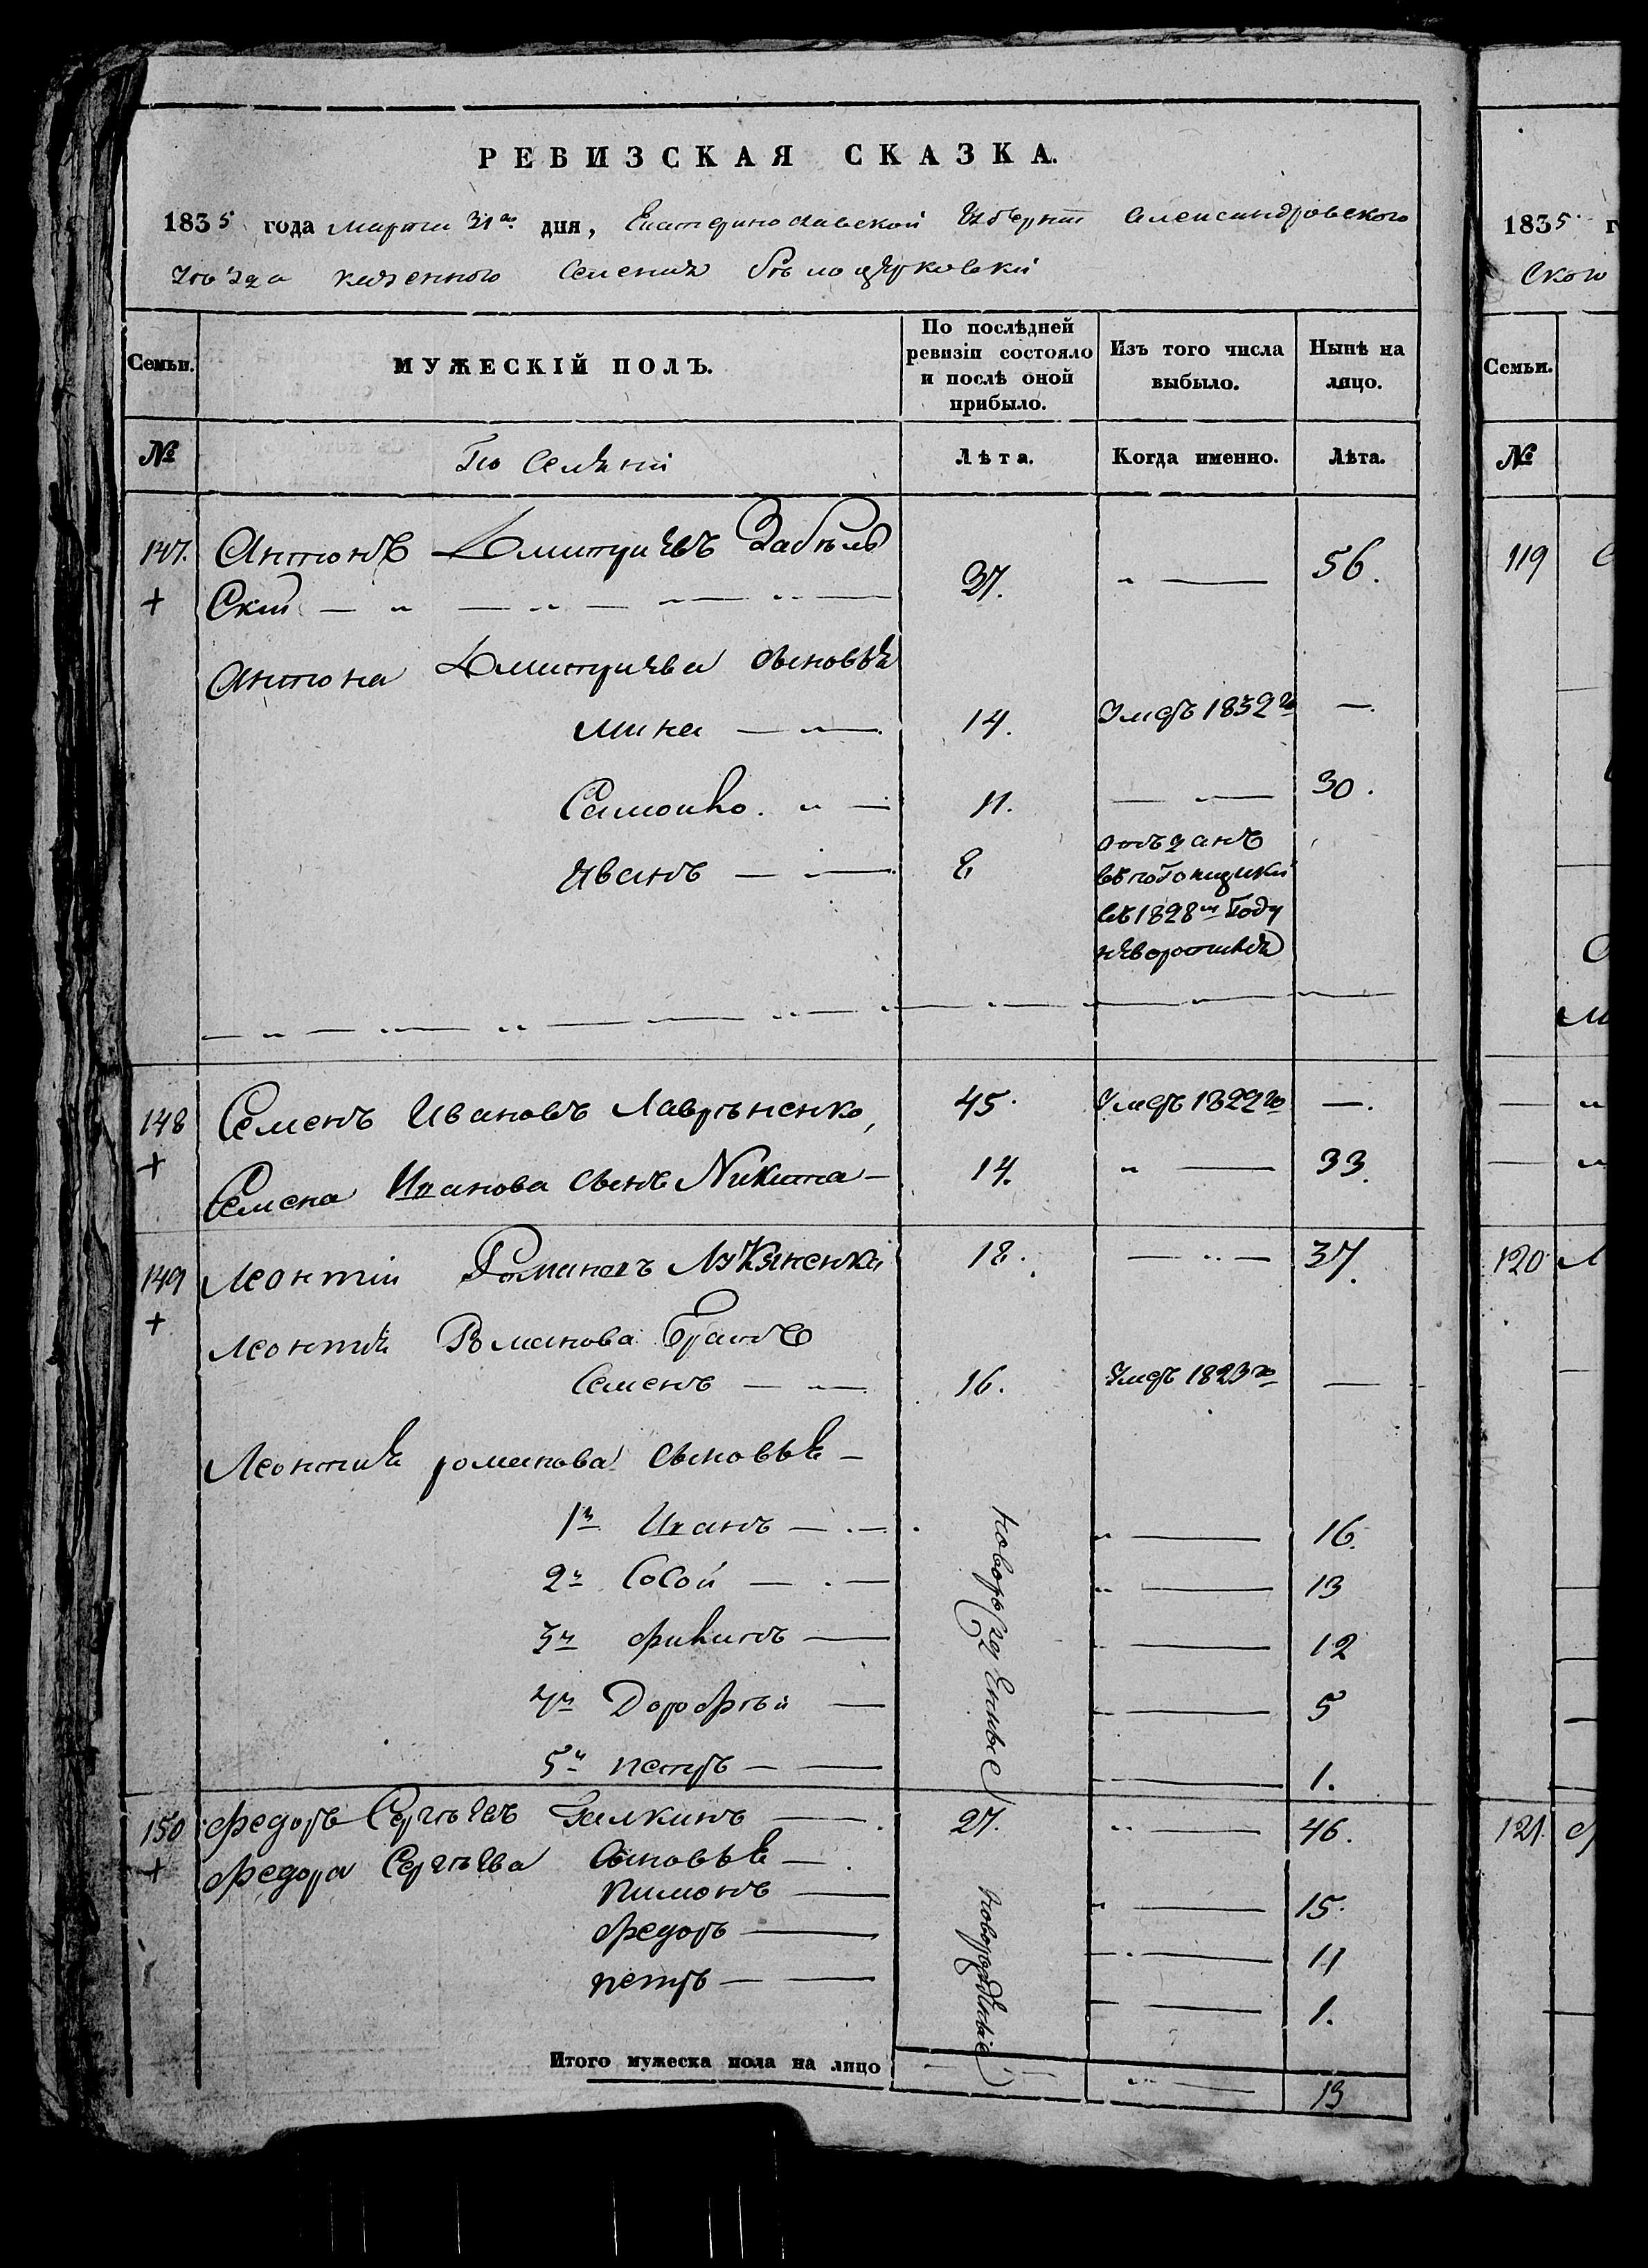 РЕВИЗСКАЯ СКАЗКА.
1835 года марта 31го дня, Екатеринославской Губерніи Александровского
Уѣзда казенного Селенія Бѣлоцерковки
Семьи.
МУЖЕСКІЙ ПОЛЪ.
По послѣдней ревизіи состояло и послѣ оной прибыло.
Изъ того числа выбыло.
Нынѣ на лицо.
№
Лѣта.
Когда именно.
Лѣта.
147. Антонъ Дмитріевъ Забѣль
+ Скій 37. 56.
Антона Дмитріева сыновья
Мина 14. Умеръ 1832го —.
Самойло. 11. 30.
Иванъ 8 отъданъ
въ погонщики
въ 1828м Году
148 Семенъ Ивановъ Лаврѣненко, 45. Умеръ 1822го —.
+ Семена Иванова сынъ Никита 14. 33.
149 Леонтій Романовъ Лукяненко 18. 37.
+ Леонтія Романова Братъ
Семенъ 16. Умеръ 1823го —
Леонтія романова сыновья
1й Иванъ новорожденные 16.
2й Сосой 13
3й Филипъ 12
4й Дорофѣй 5
5й петръ 1.
150 Федоръ Сергѣевъ Галкинъ 27. 46.
+ Федора Сергѣева Сыновья
пимонъ новорожденные 15.
Федоръ 11
петръ 1.
Итого мужеска пола на лицо 13
1835
Ского
Семьи.
№
119
120
121.